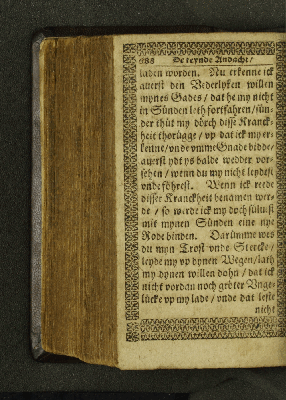 688 De teynde Andacht/
laden worden. Nu erkenne ick
auerst den Vederlyken willen
mynes Gades / dat he my nicht
in Sünden leth fortfahren/sün-
der thüt my dörch disse Kranck-
heit thorügge / vp dat ick my er-
kenne/vnde vmme Gnade bidde/
auerst ydt ys balde wedder vor-
sehen / wenn du my nicht leydest
vnde föhrest. Wenn ick rede
disser Kranckheit benamen wer-
de / so werde ick my doch sülust
mit mynen Sünden eine nye
Rode binden. Darümme wes
du myn Trost vnde Stercke/
leyde my vp dynen Wegen/lath
my dynen willen dohn / dat ick
nicht vordan noch gröter Vnge-
lücke vp my lade / vnde dat leste
nicht